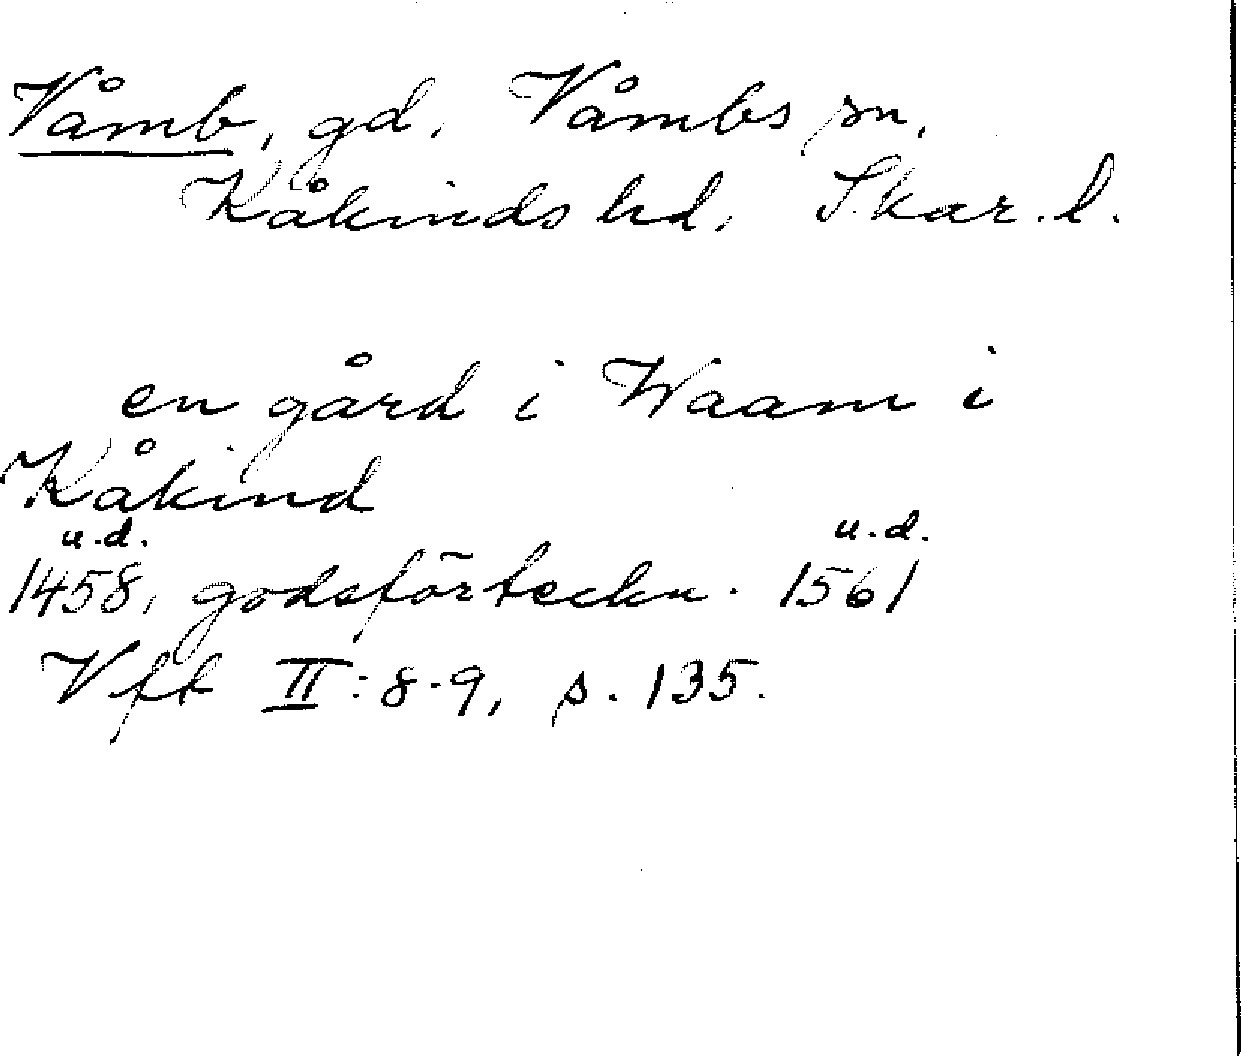 Våmb, gd. Våmbs sn,
Kåkinds hd. Skar. l.
en gård i Waam i
Kåkind
u.d. u.d.
1458, godsförteckn. 1561
Vft II:8-9, s. 135.